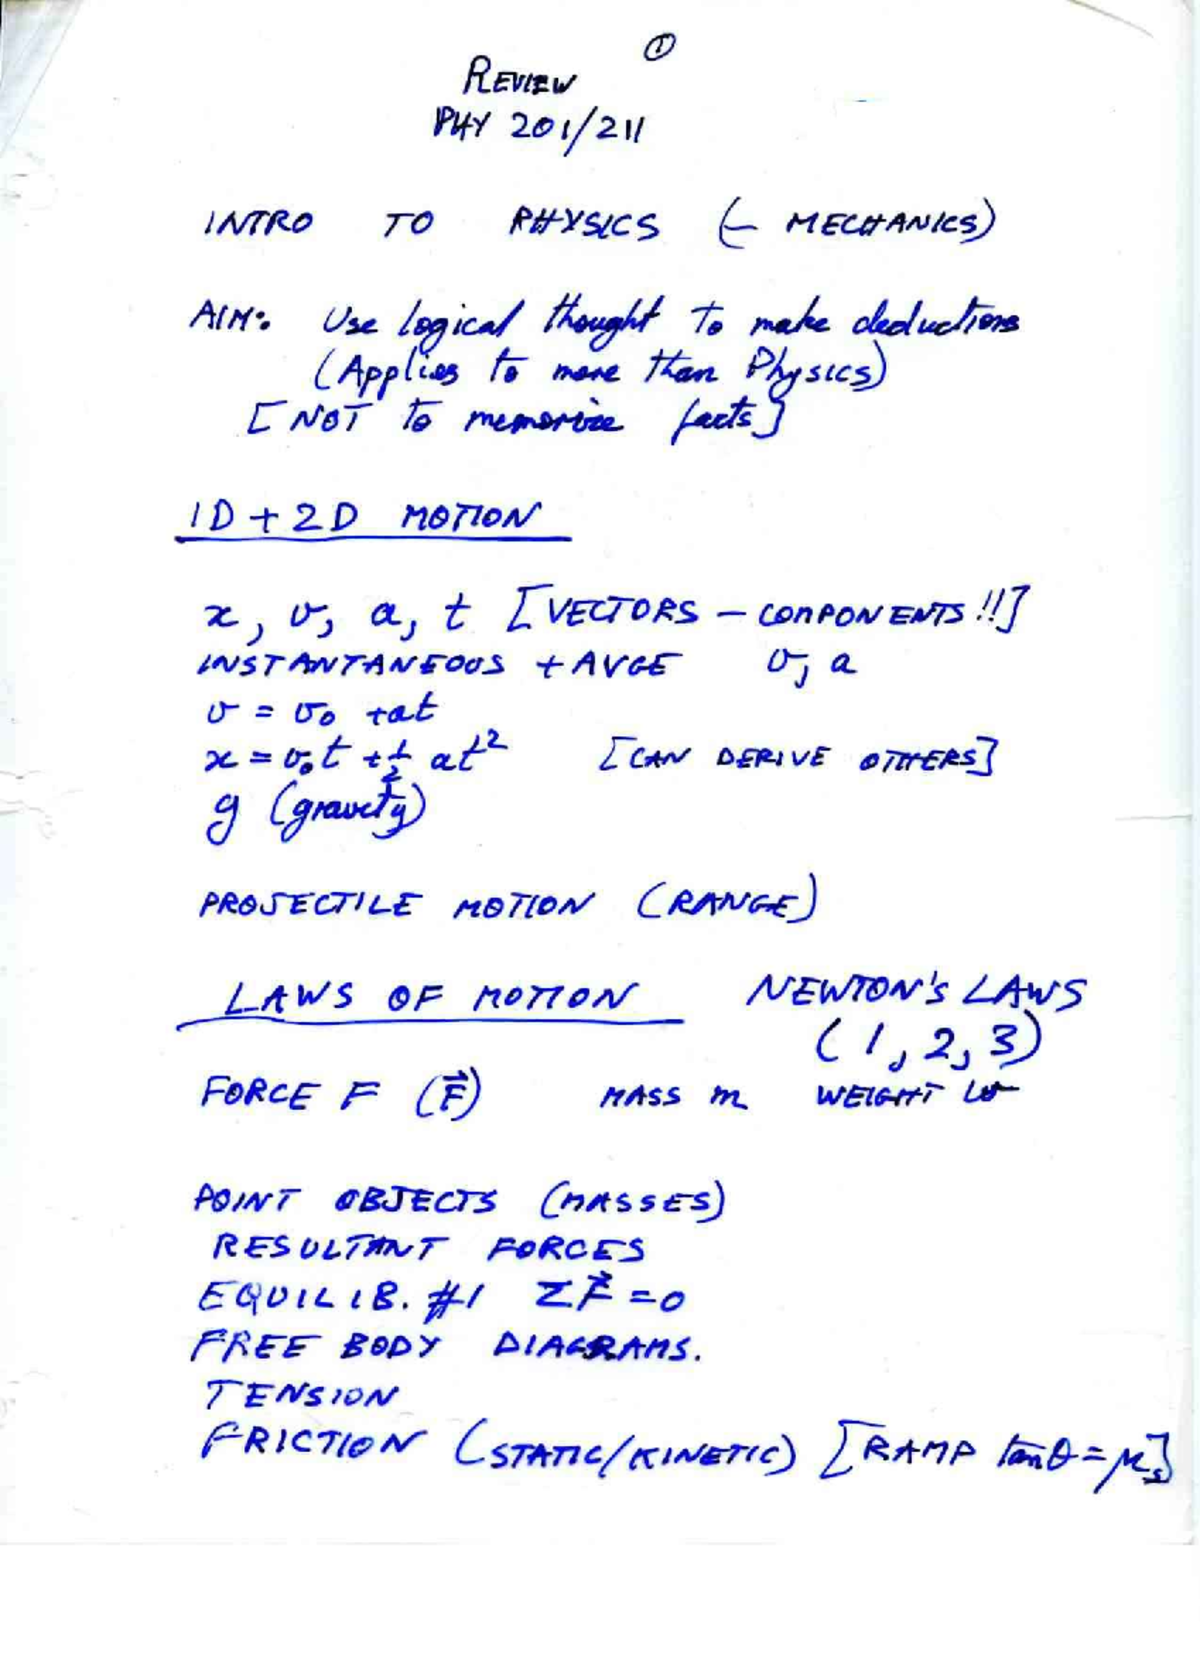 ①
REVIEW
PHY 201/211
INTRO TO PHYSICS (– MECHANICS)
AIM: Use logical thought to make deductions
(Applies to more than Physics)
[NOT to memorize facts]
1D + 2D MOTION
x, v, a, t [VECTORS – COMPONENTS!!]
INSTANTANEOUS + AVGE v, a
v = v₀ + at
x = v₀t + ½ at² [CAN DERIVE OTHERS]
g (gravity)
PROJECTILE MOTION (RANGE)
LAWS OF MOTION NEWTON'S LAWS
(1, 2, 3)
FORCE F (F⃗) MASS m WEIGHT w
POINT OBJECTS (MASSES)
RESULTANT FORCES
EQUILIB. #1 ΣF⃗ = 0
FREE BODY DIAGRAMS.
TENSION
FRICTION (STATIC/KINETIC) [RAMP tanθ = μₛ]